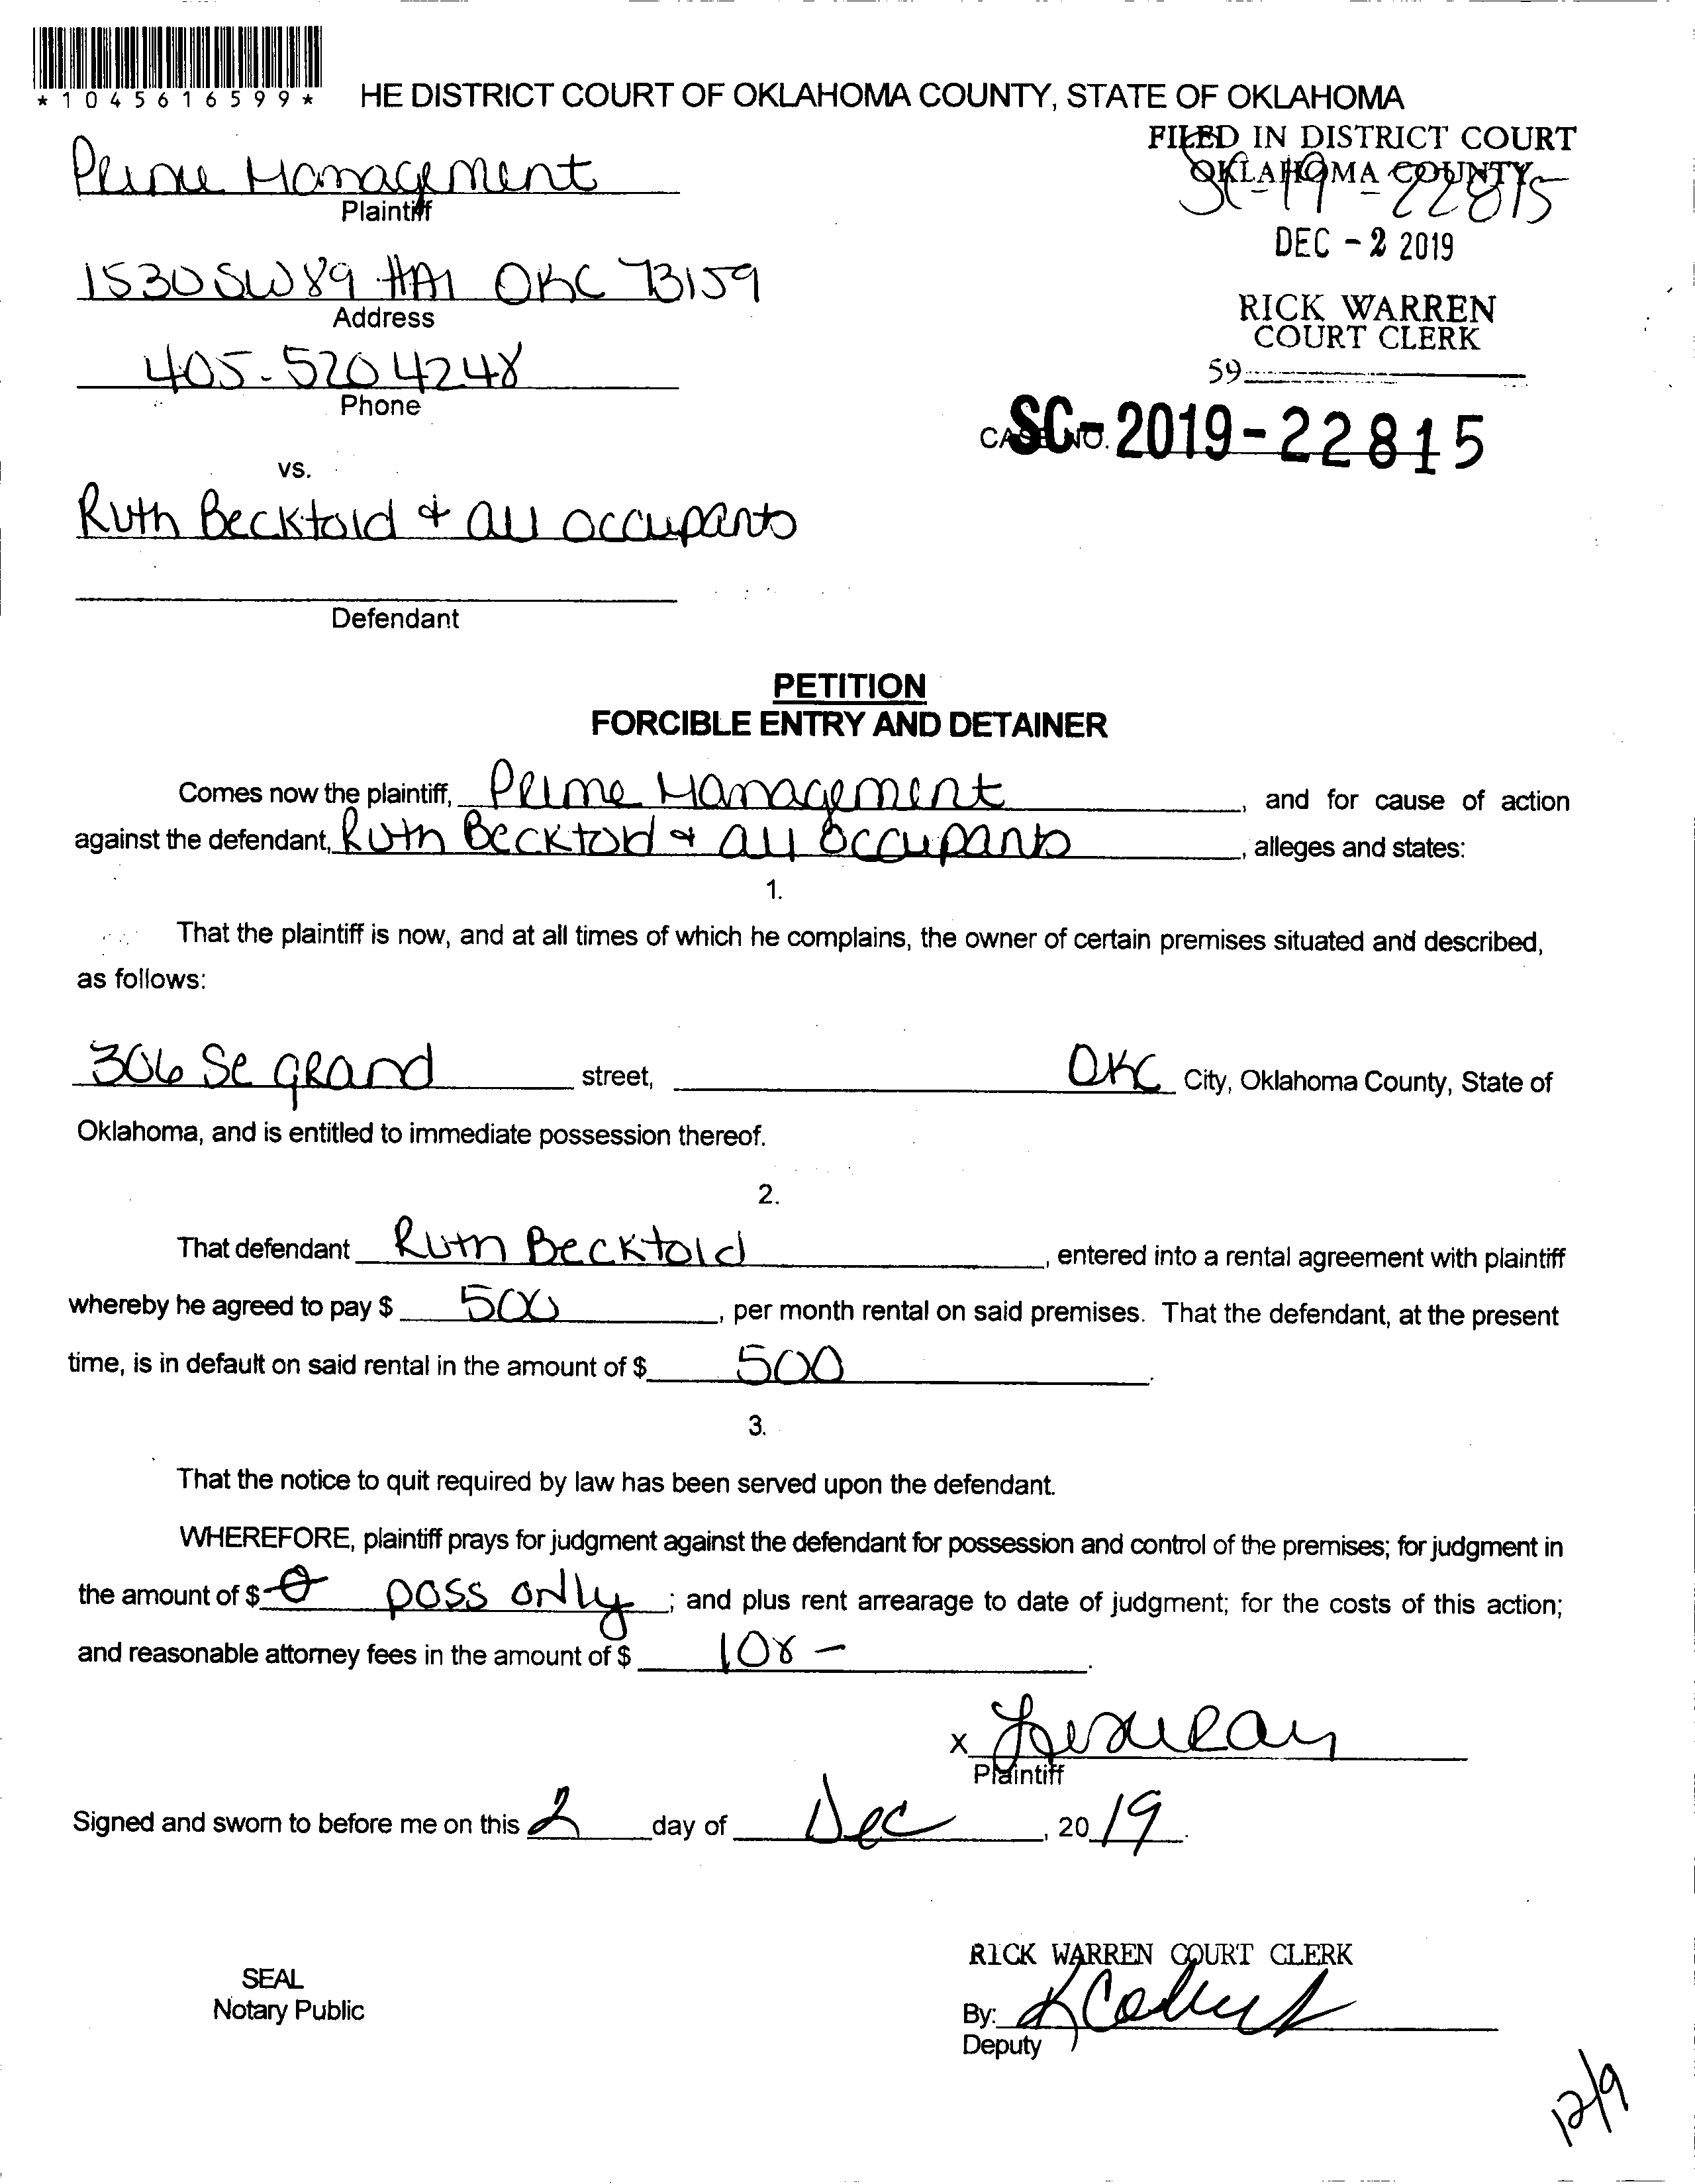 *1045616599*
HE DISTRICT COURT OF OKLAHOMA COUNTY, STATE OF OKLAHOMA
FILED IN DISTRICT COURT
OKLAHOMA COUNTY
SC-19-22815
DEC - 2 2019
RICK WARREN
COURT CLERK
59
CASE NO. SC-2019-22815
Prime Management
Plaintiff
1530 SW 89 #A1 OKC 73159
Address
405-520 4248
Phone
vs.
Ruth Becktold & all occupants
Defendant
PETITION
FORCIBLE ENTRY AND DETAINER
Comes now the plaintiff, Prime Management, and for cause of action
against the defendant, Ruth Becktold & all occupants, alleges and states:
1.
That the plaintiff is now, and at all times of which he complains, the owner of certain premises situated and described,
as follows:
306 Se grand street, OKC City, Oklahoma County, State of
Oklahoma, and is entitled to immediate possession thereof.
2.
That defendant Ruth Becktold, entered into a rental agreement with plaintiff
whereby he agreed to pay $ 500, per month rental on said premises. That the defendant, at the present
time, is in default on said rental in the amount of $ 500.
3.
That the notice to quit required by law has been served upon the defendant.
WHEREFORE, plaintiff prays for judgment against the defendant for possession and control of the premises; for judgment in
the amount of $ 0 poss only; and plus rent arrearage to date of judgment; for the costs of this action;
and reasonable attorney fees in the amount of $ 108 -.
X
Plaintiff
Signed and sworn to before me on this 2 day of Dec, 2019.
RICK WARREN COURT CLERK
SEAL
Notary Public
By:
Deputy
12/9